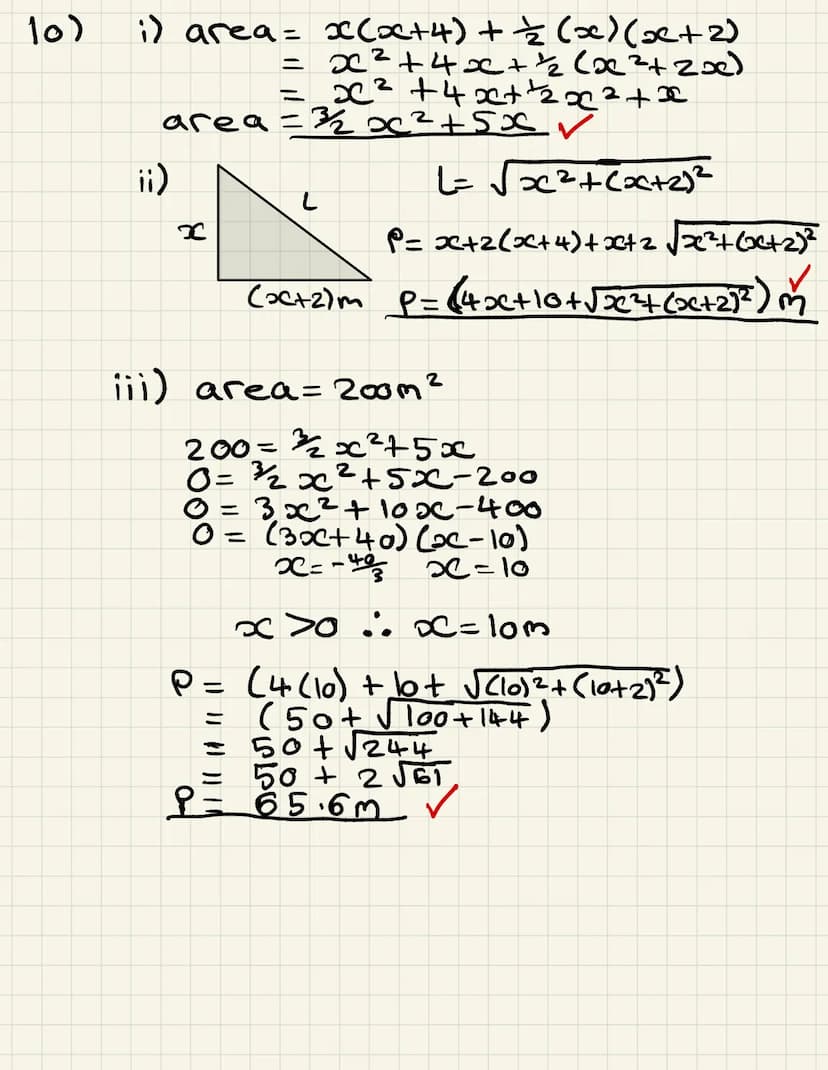 10) i) area = x(x+4) + ½(x)(x+2)
= x² + 4x + ½(x² + 2x)
= x² + 4x + ½x² + x
area = 3/2 x² + 5x ✓
ii)
L
x
(x+2)m
L = √x²+(x+2)²
P = x+2(x+4)+x+2 √x²+(x+2)²
P = (4x+10+√x²+(x+2)²) m ✓
iii) area = 200m²
200 = 3/2 x² + 5x
0 = 3/2 x² + 5x - 200
0 = 3x² + 10x - 400
0 = (3x+40)(x-10)
x = -40/3 x = 10
x > 0 ∴ x = 10m
P = (4(10) + 10 + √(10)²+(10+2)²)
= (50 + √100+144)
= 50 + √244
= 50 + 2√61
P = 65.6m ✓